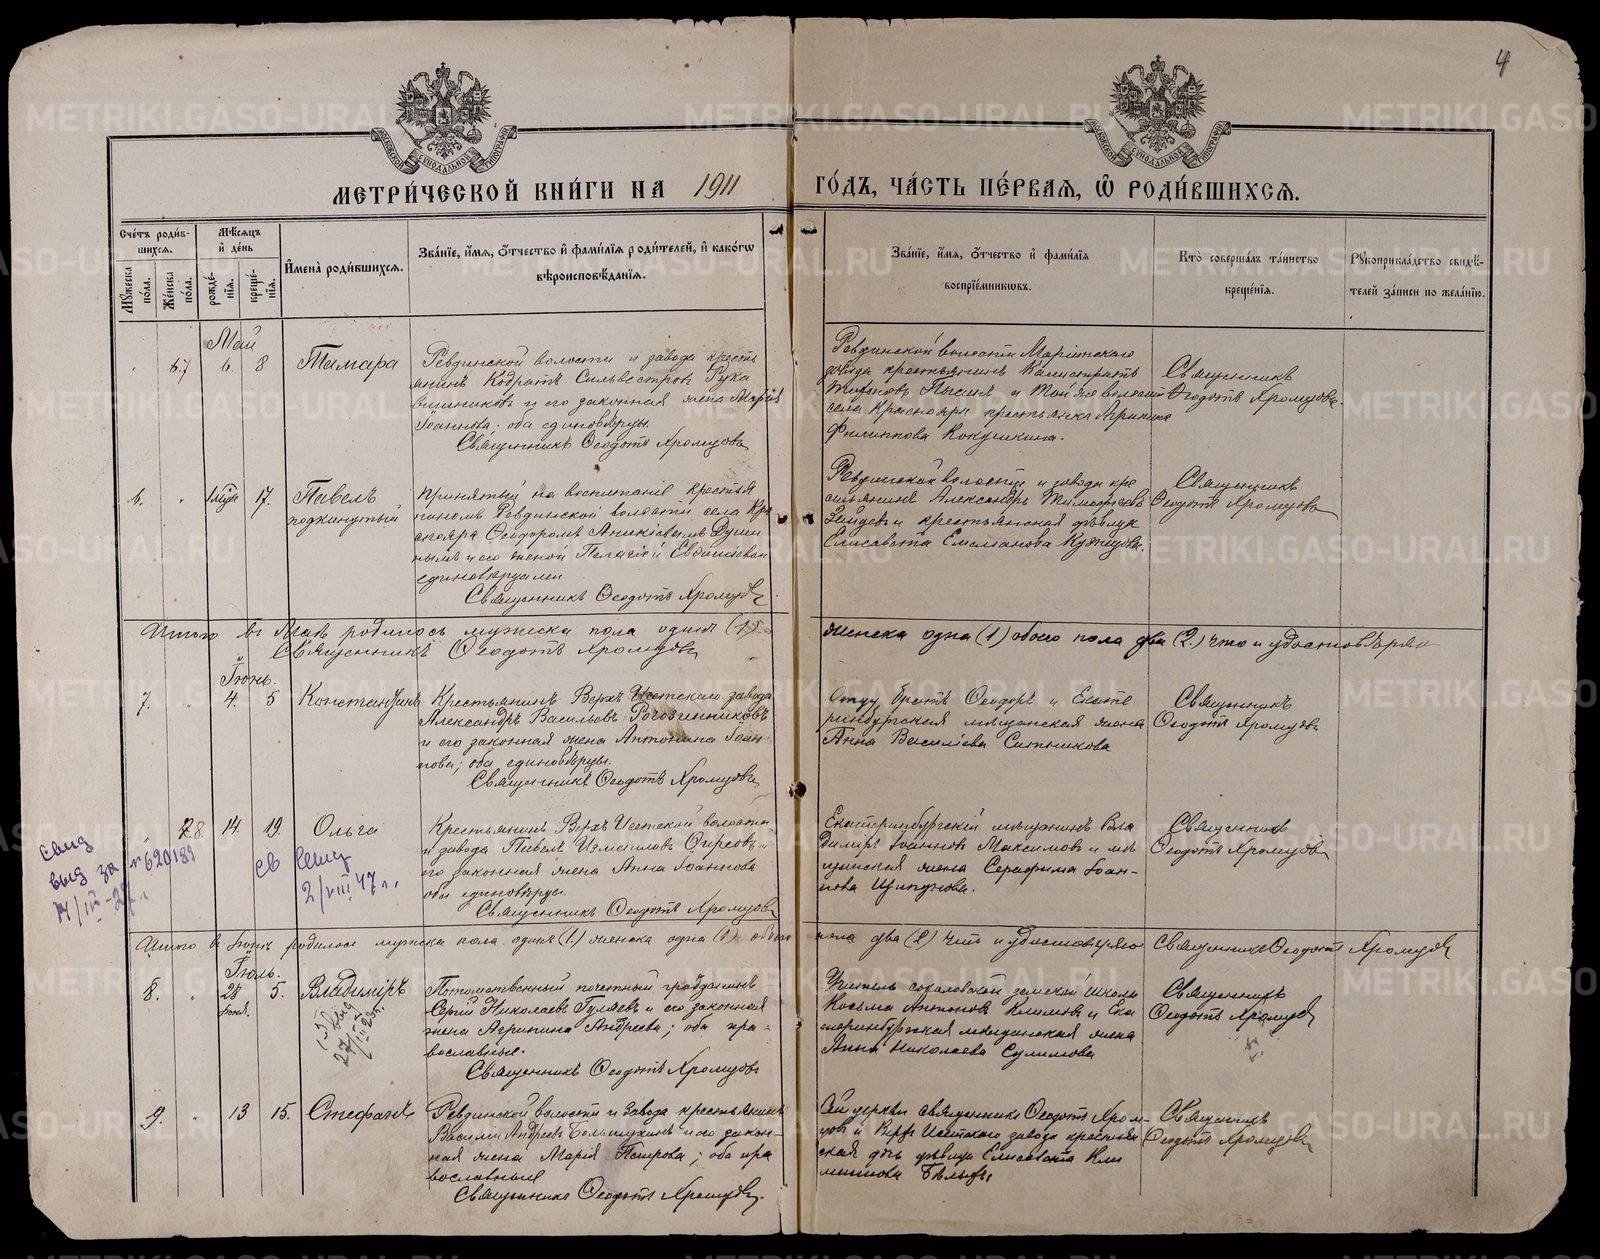 4
МЕТРИ́ЧЕСКОЙ КНИ́ГИ НА 1911 ГО́ДЪ, ЧА́СТЬ ПЕ́РВАЯ, Ѡ РОДИ́ВШИХСЯ.
Сче́тъ роди́в-
шихся.
Му́жеска по́ла.
Же́нска по́ла.
Мѣ́сяцъ
и де́нь
рожде́-
нїя.
креще́-
нїя.
Имена̀ роди́вшихся.
Зва́нїе, и́мя, о́тчество и фами́лїя роди́телей, и како́гѡ
вѣроисповѣ́данїя.
Зва́нїе, и́мя, о́тчество и фами́лїя
воспрїе́мникѡвъ.
Кто̀ соверша́лъ та́инство
креще́нїя.
Рукоприкла́дство свидѣ́-
телей за́писи по жела́нїю.
Май
6. 8 Тамара
Ревдинской волости и завода кресть
янинъ Кодратъ Сильвестровъ Рука
вишниковъ и его законная жена Марія
Іоаннова; оба единовѣрцы.
Священникъ Ѳеодотъ Хромцовъ
Ревдинской волости Маріинскаго
завода крестьянинъ Калистратъ
села Краснояра крестьянка
Филиппова Кокушкина.
Священникъ
Ѳеодотъ Хромцовъ
6. 17. Павелъ
подкинутый
Принятый на воспитаніе крестья
ниномъ Ревдинской волости села Кра
снояра Ѳеодоромъ Аникіевымъ
нымъ и его женой Пелагіей
единовѣрцами
Священникъ Ѳеодотъ Хромцовъ
Ревдинской волости и завода кре
стьянинъ Александръ Тимоѳеевъ
и крестьянская дѣвица
Елисавета Емельянова Кузнецова.
Священникъ
Ѳеодотъ Хромцовъ
Итого въ Маѣ родилось мужеска пола одинъ (1) женска одна (1) обоего пола два (2) что и удостовѣряю
Священникъ Ѳеодотъ Хромцовъ
Іюнь.
7. 4. 5 Константинъ
Крестьянинъ Верхъ Исетскаго завода
Александръ Васильевъ Рогозинниковъ
и его законная жена Антонина Іоан-
нова; оба единовѣрцы.
Священникъ Ѳеодотъ Хромцовъ
Отцу братъ Ѳеодоръ и Екате
ринбургская мѣщанская жена
Анна Василіева Ситникова
Священникъ
Ѳеодотъ Хромцовъ
8. 14. 19. Ольга
Крестьянинъ Верхъ Исетской волости
и завода Павелъ Измаиловъ и
его законная жена Анна Іоаннова
оба единовѣрцы.
Священникъ Ѳеодотъ Хромцовъ
Екатеринбургскій мѣщанинъ Вла
димиръ Іоанновъ Максимовъ и мѣ
щанская жена Серафима Іоан-
нова
Священникъ
Ѳеодотъ Хромцовъ
свид
выд за № 620189
2/VIII 47 г.
Итого въ Іюнѣ родилось мужеска пола одинъ (1.) женска одна (1) обоего пола два (2) что и удостовѣряю Священникъ Ѳеодотъ Хромцовъ
Іюль.
8. 28 Іюня. 5. Владиміръ
Потомственный почетный гражданинъ
Сергій Николаевъ Гуляевъ и его законная
жена Агрипина Андреева; оба пра-
вославные.
Священникъ Ѳеодотъ Хромцовъ
Учитель земской школы
Косьма Антоновъ Климовъ и Ека
теринбургская мѣщанская жена
Анна Николаева Сулимова
Священникъ
Ѳеодотъ Хромцовъ
9. 13 15. Стефанъ
Ревдинской волости и завода крестьянинъ
Василій Андреевъ и его закон-
ная жена Марія Петрова; оба пра
вославные
Священникъ Ѳеодотъ Хромцовъ.
Сей церкви священникъ Ѳеодотъ Хром-
цовъ и Верхъ Исетскаго завода крестьян
ская дочь дѣвица Елисавета Кли
ментова
Священникъ
Ѳеодотъ Хромцовъ
METRIKI.GASO-URAL.RU